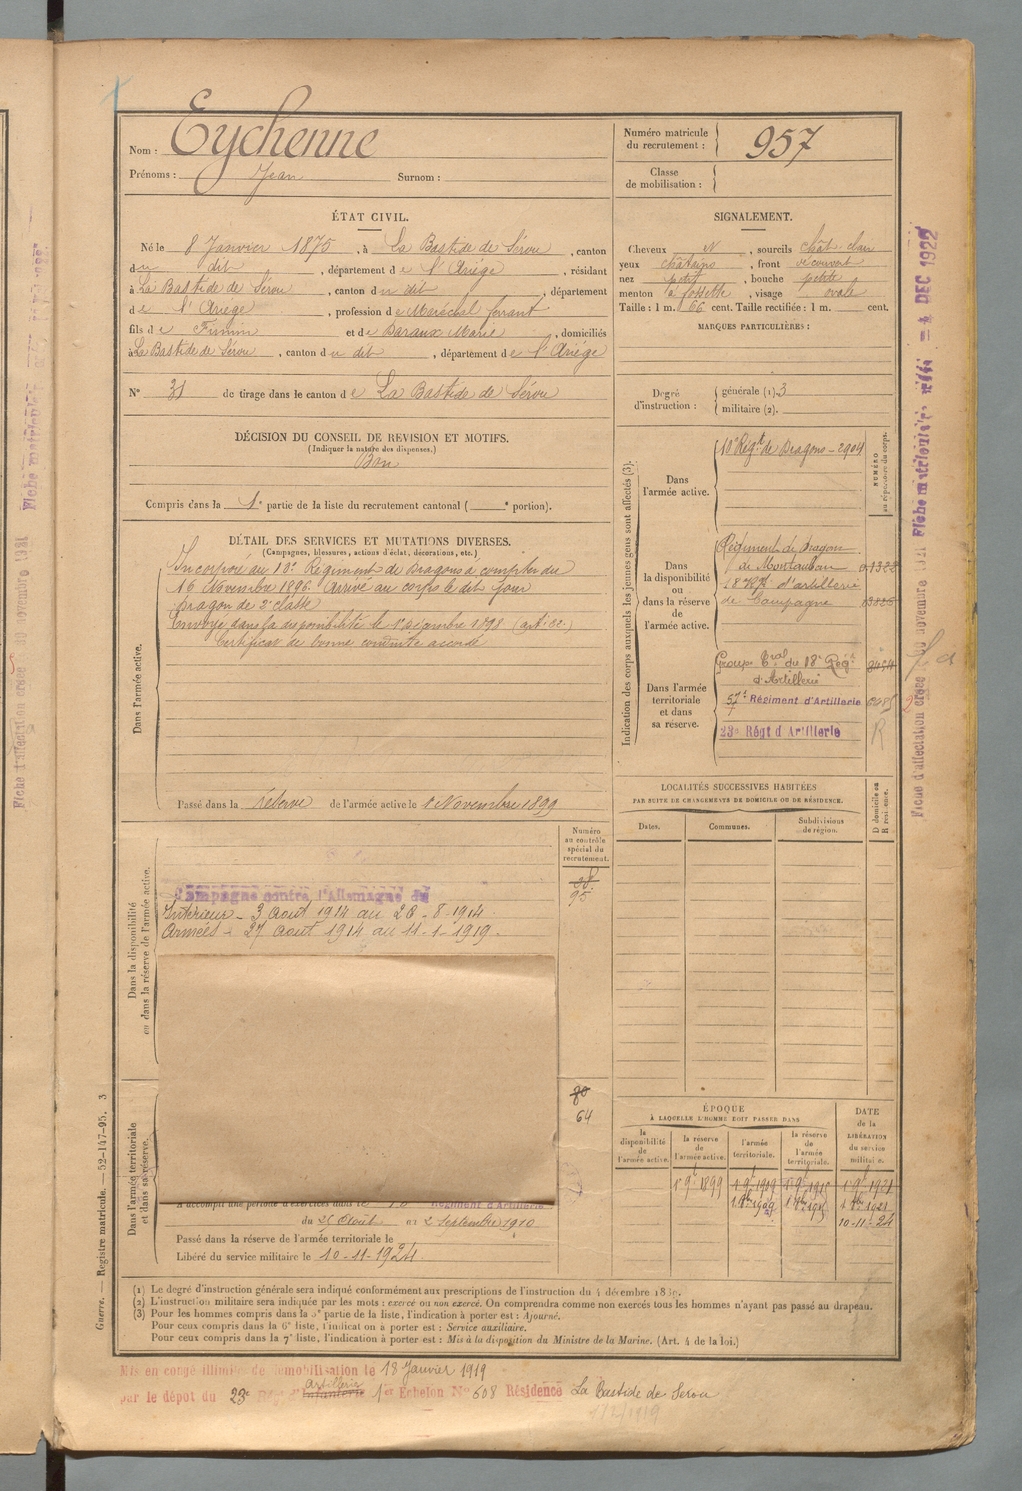 Nom : Eychenne
Prénoms : Jean Surnom :
Numéro matricule du recrutement : 957
Classe de mobilisation :
ÉTAT CIVIL.
Né le 8 Janvier 1875, à La Bastide de Sérou, canton
du dit, département de l'Ariège, résidant
à La Bastide de Sérou, canton du dit, département
de l'Ariège, profession de Maréchal ferrant
fils de Firmin et de Baraux Marie, domiciliés
à La Bastide de Sérou, canton du dit, département de l'Ariège
N° 31 de tirage dans le canton de La Bastide de Sérou
SIGNALEMENT.
Cheveux N, sourcils chât. clair
yeux châtains, front découvert
nez petit, bouche petite
menton à fossette, visage ovale
Taille : 1 m. 66 cent. Taille rectifiée : 1 m. cent.
MARQUES PARTICULIÈRES :
Degré d'instruction : générale (1). 3
militaire (2).
DÉCISION DU CONSEIL DE REVISION ET MOTIFS.
(Indiquer la nature des dispenses.)
Bon
Compris dans la 1e partie de la liste du recrutement cantonal ( e portion).
DÉTAIL DES SERVICES ET MUTATIONS DIVERSES.
(Campagnes, blessures, actions d'éclat, décorations, etc.)
Dans l'armée active.
Incorporé au 10e Régiment de Dragons à compter du
16 Novembre 1896. Arrivé au corps le dit jour
Dragon de 2e classe
Envoyé dans la disponibilité le
Certificat de bonne conduite accordé
Passé dans la réserve de l'armée active le 1 Novembre 1899
Indication des corps auxquels les jeunes gens sont affectés (3).
NUMÉRO au répertoire du corps.
Dans l'armée active.
10e Régt de Dragons - 2904
Dans la disponibilité ou dans la réserve de l'armée active.
Régiment de Dragon
de Montauban
18e Rgt d'artillerie
de Campagne
Dans l'armée territoriale et dans sa réserve.
Groupe Tral du 18e Régt
d'Artillerie
57e Régiment d'Artillerie
23e Régt d'Artillerie R
LOCALITÉS SUCCESSIVES HABITÉES
PAR SUITE DE CHANGEMENTS DE DOMICILE OU DE RÉSIDENCE.
Dates. Communes. Subdivisions de région. D domicile ou R résidence.
Numéro au contrôle spécial du recrutement.
95
Dans la disponibilité ou dans la réserve de l'armée active.
Campagne contre l'Allemagne du
Intérieur - 3 Août 1914 au 26-8-1914.
Armées - 27 Août 1914 au 11-1-1919.
80
64
Dans l'armée territoriale et dans sa réserve.
A accompli une période d'exercices dans le Régiment d'Artillerie
du 25 Août au 2 Septembre 1910
Passé dans la réserve de l'armée territoriale le
Libéré du service militaire le 10-11-1924
ÉPOQUE
À LAQUELLE L'HOMME DOIT PASSER DANS
DATE de la LIBÉRATION du service militaire.
la disponibilité de l'armée active. la réserve de l'armée active. l'armée territoriale. la réserve de l'armée territoriale.
1 9bre 1899
10-11-24
(1) Le degré d'instruction générale sera indiqué conformément aux prescriptions de l'instruction du 4 décembre 1889.
(2) L'instruction militaire sera indiquée par les mots : exercé ou non exercé. On comprendra comme non exercés tous les hommes n'ayant pas passé au drapeau.
(3) Pour les hommes compris dans la 5e partie de la liste, l'indication à porter est : Ajourné.
Pour ceux compris dans la 6e liste, l'indication à porter est : Service auxiliaire.
Pour ceux compris dans la 7e liste, l'indication à porter est : Mis à la disposition du Ministre de la Marine. (Art. 4 de la loi.)
Mis en congé illimité de démobilisation le 18 Janvier 1919
par le dépôt du 23e Artillerie 1er Echelon N° 608 Résidence La Bastide de Serou
Guerre. — Registre matricule. — 52-147-95. 3